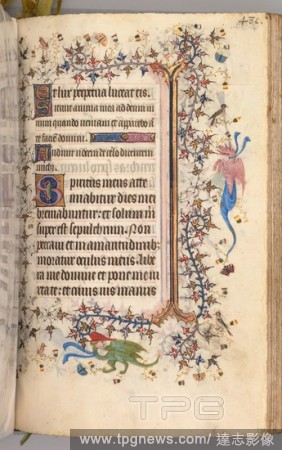 486.
Et lux perpetua luceat eis.
Sitivit anima mea ad deum vi
vum quando veniam et apparebo a
te faciem domini.
Audivi vocem de celo dicentem
michi
Spiritus meus atte
nuabitur dies mei
breviabuntur: et solum m̄
super est sepulchrum. Non
peccavi et in amaritudinib;
moratur oculus meus. Libe
ra me domine et pone me iu
xta te: et cuius vis manus
TPG
www.tpgnews.com/達志影像